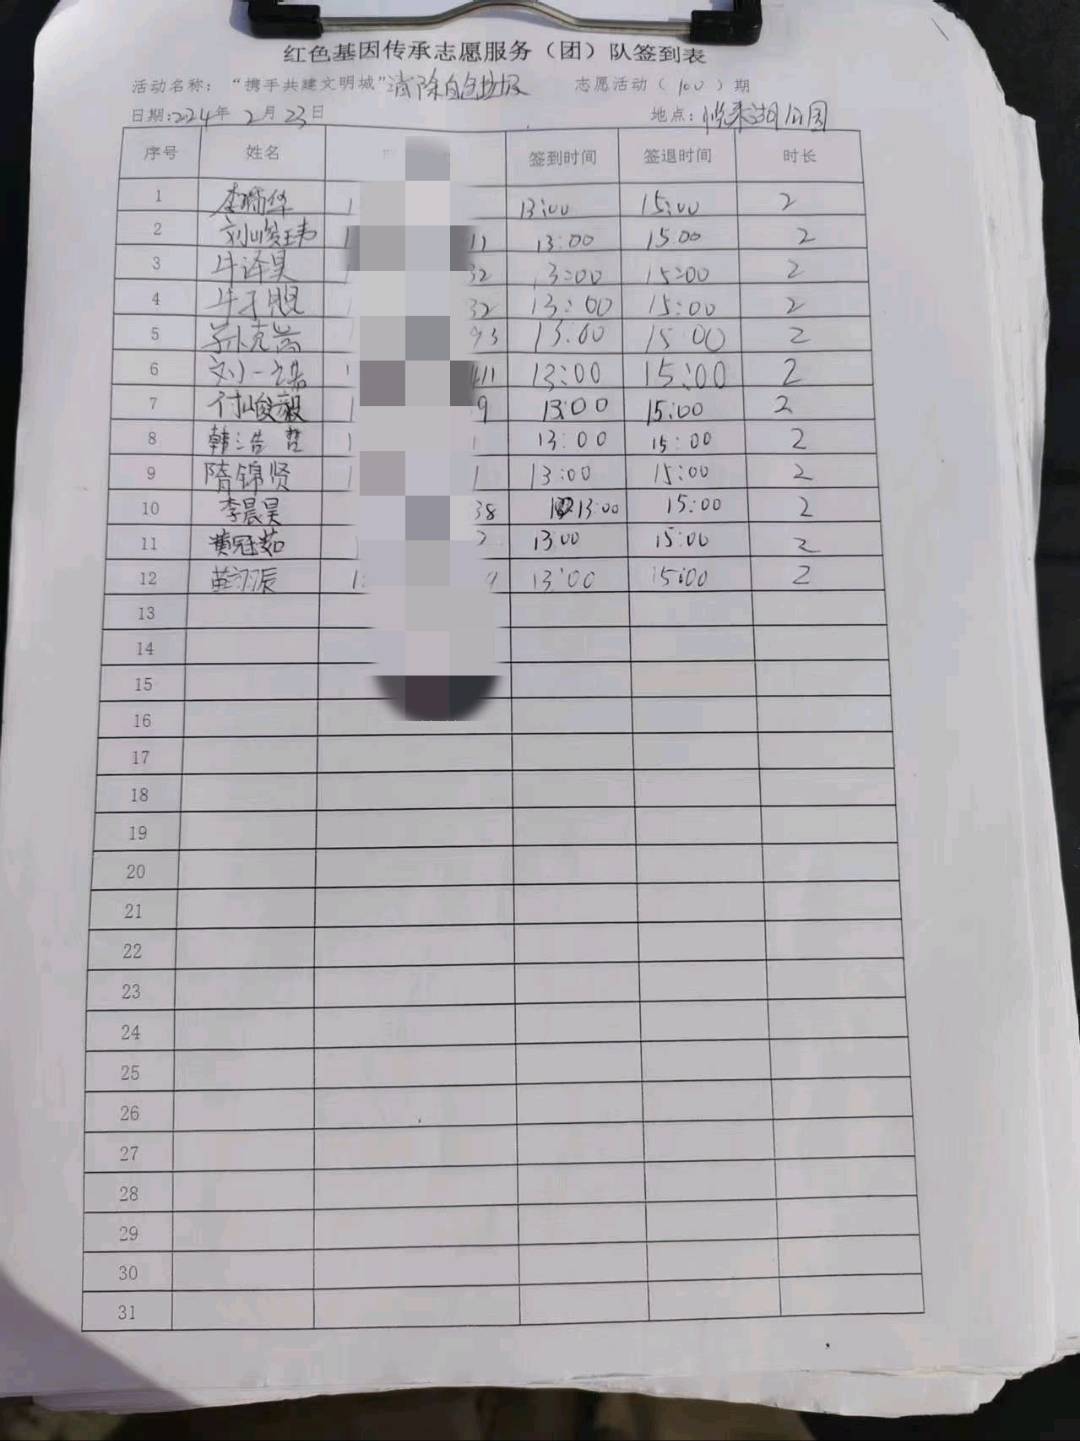 红色基因传承志愿服务（团）队签到表
活动名称：“携手共建文明城”消除白色垃圾 志愿活动（100）期
日期:2024年2月23日 地点：悦来湖公园
序号 姓名 签到时间 签退时间 时长
1 李瑞华 1 13:00 15:00 2
2 刘峻玮 1 11 13:00 15:00 2
3 牛泽昊 32 13:00 15:00 2
4 牛子 32 13:00 15:00 2
5 孙克 93 13:00 15:00 2
6 刘一诺 411 13:00 15:00 2
7 付峻毅 1 9 13:00 15:00 2
8 韩浩哲 1 1 13:00 15:00 2
9 隋锦贤 1 1 13:00 15:00 2
10 李晨昊 38 13:00 15:00 2
11 黄冠茹 2 13:00 15:00 2
12 苗 辰 1 9 13:00 15:00 2
13
14
15
16
17
18
19
20
21
22
23
24
25
26
27
28
29
30
31